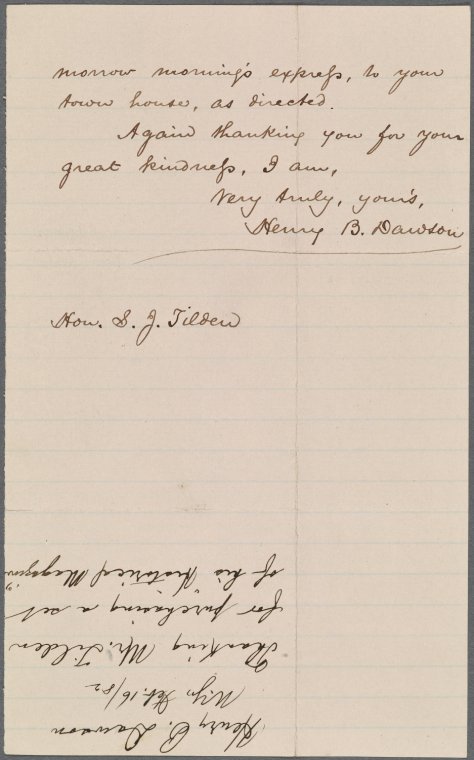 morrow morning's express, to your
town house, as directed.
Again thanking you for your
great kindness, I am,
Very truly, your's,
Henry B. Dawson
Hon. S. J. Tilden
Henry B. Dawson
Feb. 16/82
Thanking Mr. Tilden
for purchasing a set
of his Historical Magazine